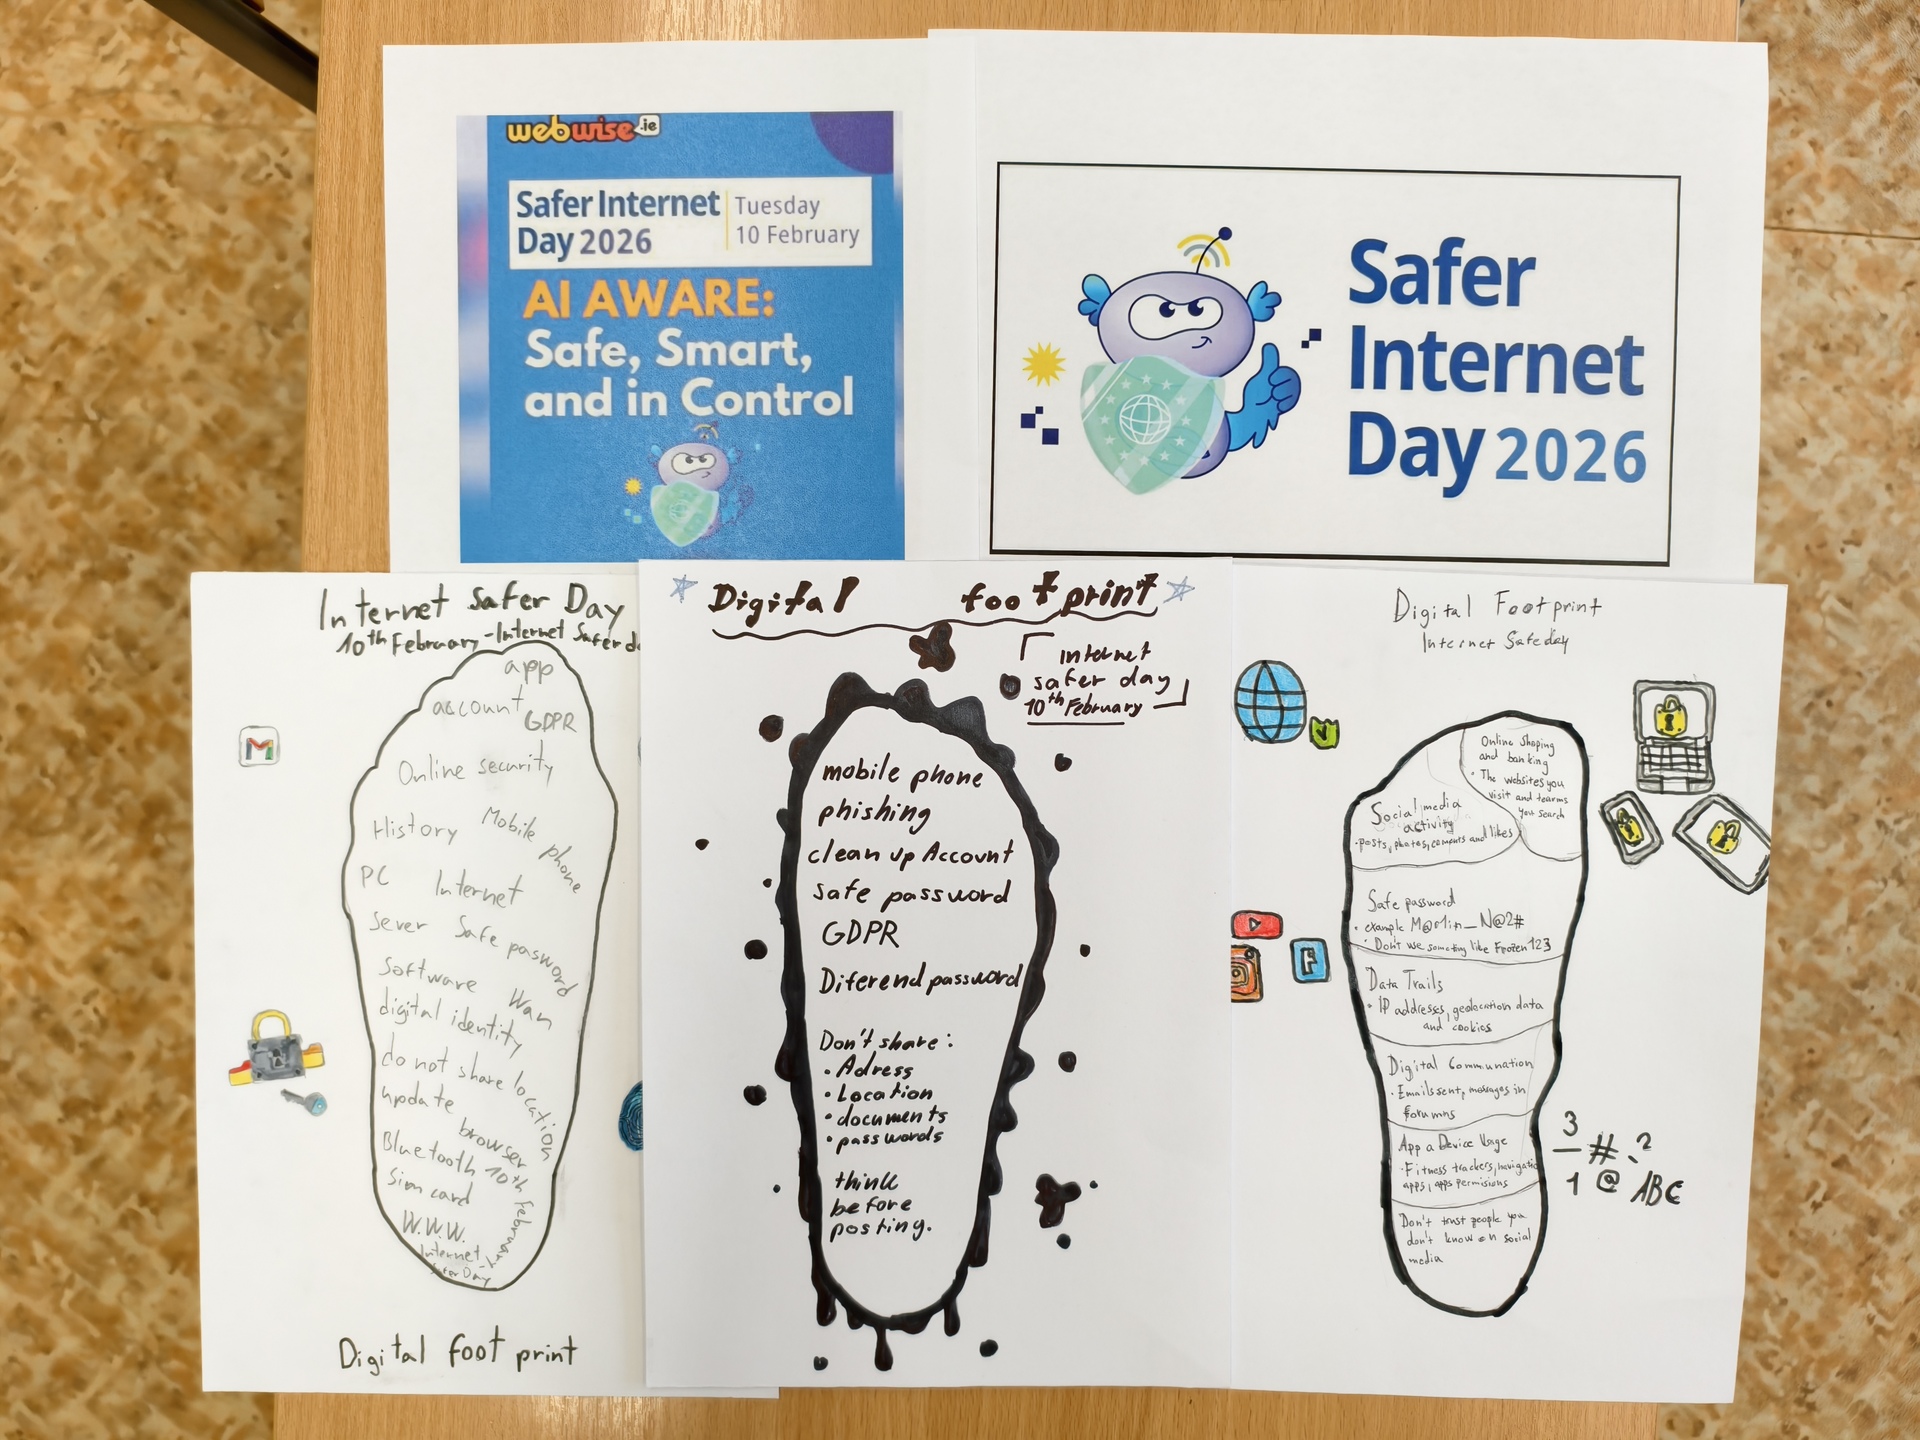 webwise.ie
Safer Internet
Day 2026
Tuesday
10 February
AI AWARE:
Safe, Smart,
and in Control
Safer
Internet
Day 2026
Internet Safer Day
10th February - Internet Safer d
app
account
GDPR
Online security
History
Mobile phone
PC
Internet
Sever
Safe pasword
Software
Wan
digital identity
do not share location
update
browser
Bluetooth
10th February
Sim card
W.W.W.
Internet
Safer Day
Digital foot print
Digital footprint
Internet
safer day
10th February
mobile phone
phishing
clean up Account
safe password
GDPR
Diferend password
Don't share:
• Adress
• Location
• documents
• passwords
think
before
posting.
Digital Footprint
Internet Safe day
Online shoping
and banking
• The websites you
visit and tearms
you search
Social media
activity
• posts, photes, coments and likes
Safe password
• example M@r1in_N@2#
• Don't use something like Frozen123
Data Trails
• IP addresses, geolocation data
and cookies
Digital Communation
• Emails sent, messages in
forumns
App a Device Usage
• Fitness trackers, navigatio
apps, apps permisions
Don't trust people you
don't know on social
media
3 # ?
1 @ ABC